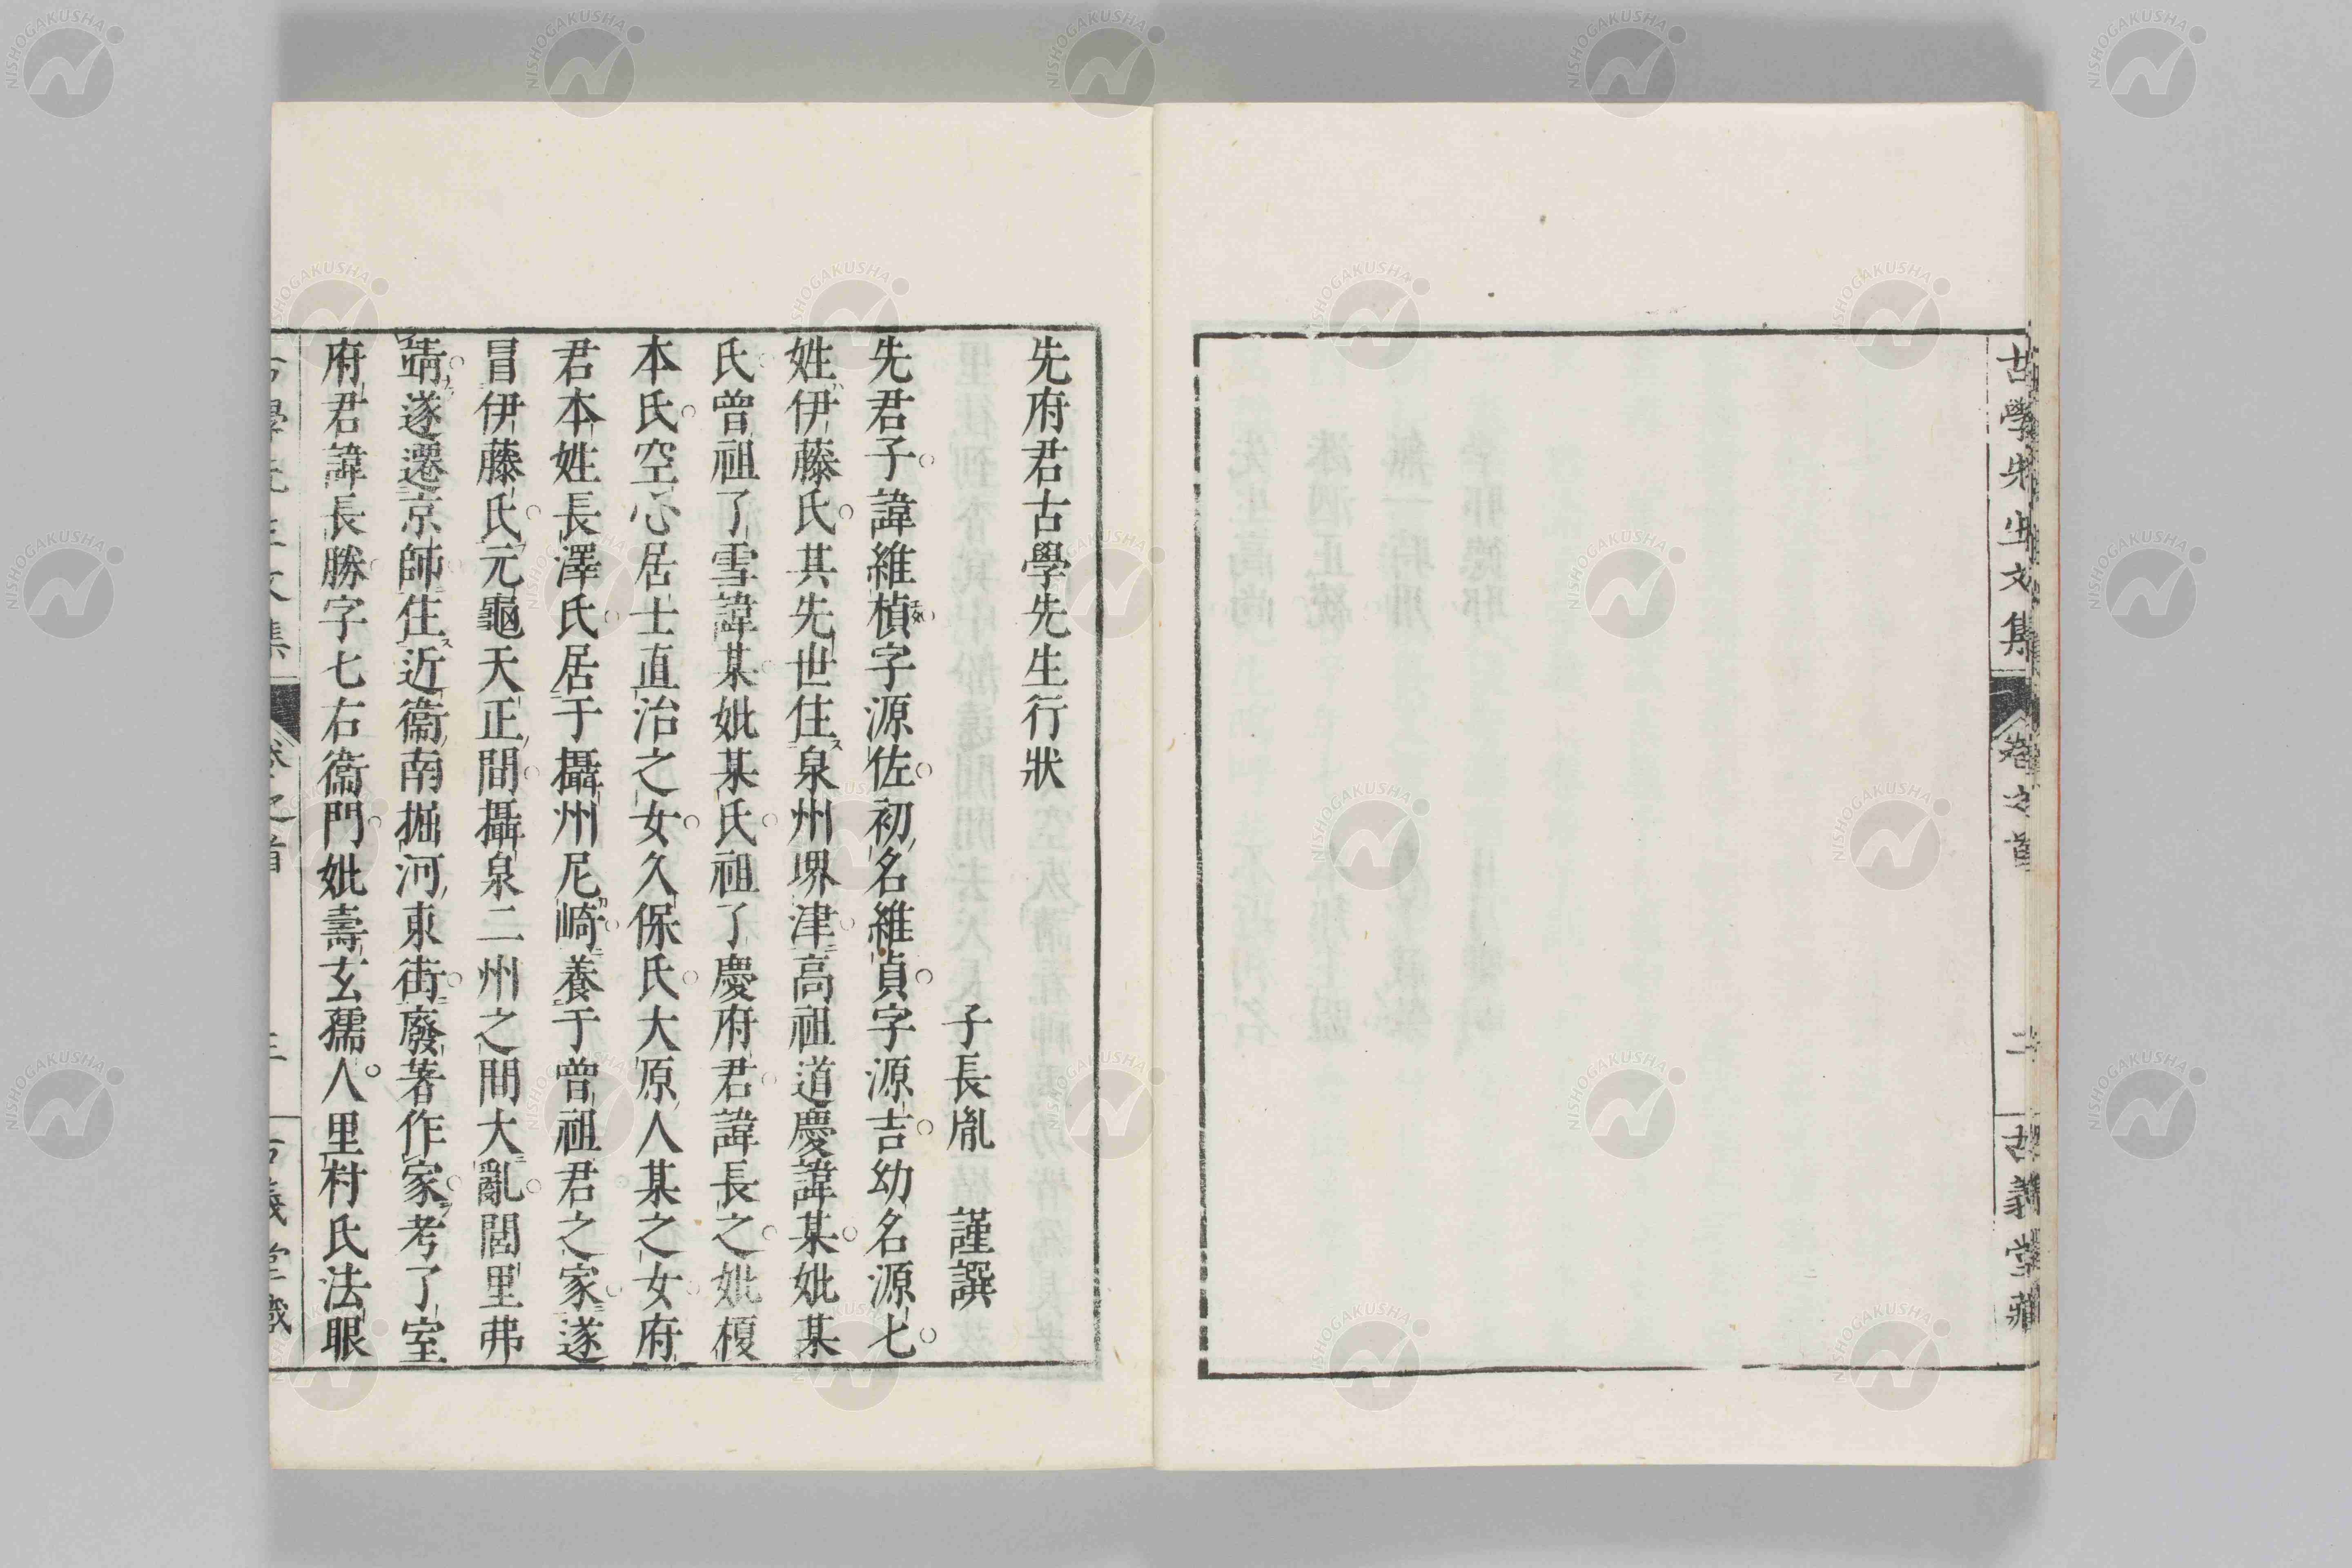 古學先生文集
卷之首
二
古義堂藏
先府君古學先生行狀
子長胤　謹譔
先君子諱維楨字源佐初名維貞字源吉幼名源七
姓伊藤氏其先世住泉州堺津高祖道慶諱某妣某
氏曾祖了雪諱某妣某氏祖了慶府君諱長之妣榎
本氏空心居士直治之女久保氏大原人某之女府
君本姓長澤氏居于攝州尼崎養于曾祖君之家遂
冒伊藤氏元龜天正間攝泉二州之間大亂閭里弗
靖遂遷京師住近衞南堀河東街廢著作家考了室
府君諱長勝字七右衞門妣壽玄孺人里村氏法眼
NISHOGAKUSHA